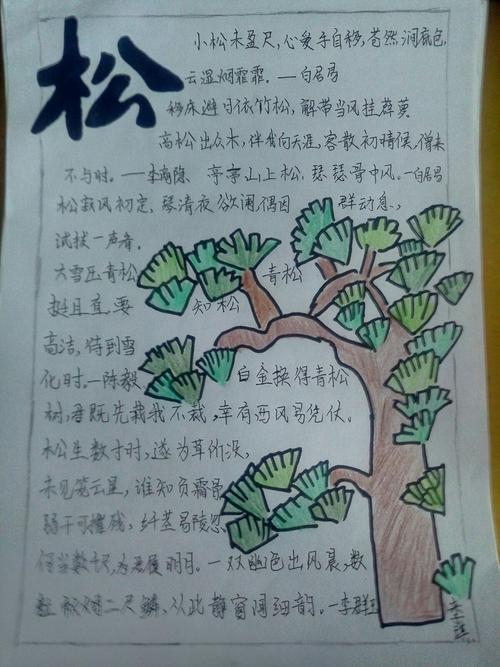 松
小松未盈尺,心爱手自移,苍然涧底色,
云湿烟霏霏。—白居易
移床避日依竹松,解带当风挂薜萝
高松出众木,伴我向天涯,客散初晴候,僧来
不与时。—李商隐 亭亭山上松,瑟瑟中风。—白居易
松寂风初定,琴清夜欲阑,偶因 群动息,
试拔一声看。
大雪压青松 青松
挺且直,要 知松
高洁,待到雪
化时.—陈毅 白金换得青松
树,君既先栽我不栽,幸有西风易凭仗。
松生数寸时,遂为草所没,
未见笼云,谁知负霜
弱干可摧残,纤茎易陵忽
何当数尺,为君明月。一双幽色出风晨,数
粒 二尺鳞,从此静窗闻细韵。—李群玉